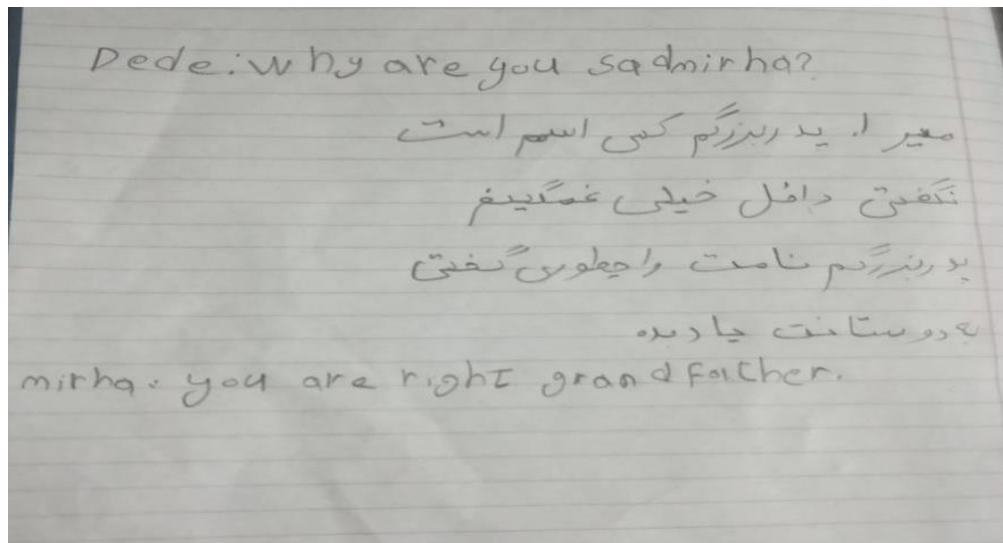 Dede: why are you sadmirha?
میر ا. پدربزرگم کسی اسم است
نگفتی داخل خیلی غمگینم
پدربزرگم نامت را چطوری گفتی
به دوستانت یاد بده
mirha. you are right grandfather.